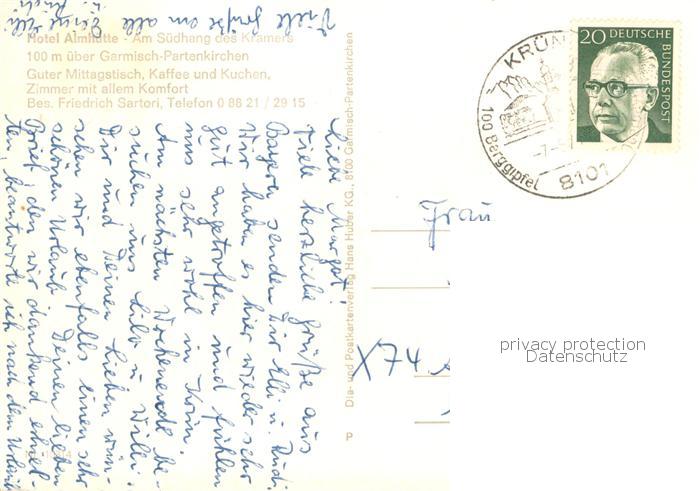 Hotel Almhütte - Am Südhang des Kramers
100 m über Garmisch-Partenkirchen
Guter Mittagstisch, Kaffee und Kuchen,
Zimmer mit allem Komfort
Bes. Friedrich Sartori, Telefon 0 88 21 / 29 15
Liebe Margot!
Viele herzliche Grüße aus
Bayern senden Dir Elli u. Rudi.
Wir haben es hier wieder sehr
gut angetroffen und fühlen
uns sehr wohl in Krün.
Am nächsten Wochenende be-
suchen uns Lilo u. Willi.
Dir und Deinen Lieben wün-
schen wir ebenfalls einen sehr
schönen Urlaub. Deinen lieben
Brief, den wir dankend erhiel-
ten, beantworte ich nach dem Urlaub
Viele Grüße an alle
Deine Elli
u. Rudi
Dia- und Postkartenverlag Hans Huber KG., 8100 Garmisch-Partenkirchen
P
Frau
X74
KRÜN
100 Berggipfel
8101
20 DEUTSCHE
BUNDESPOST
privacy protection
Datenschutz